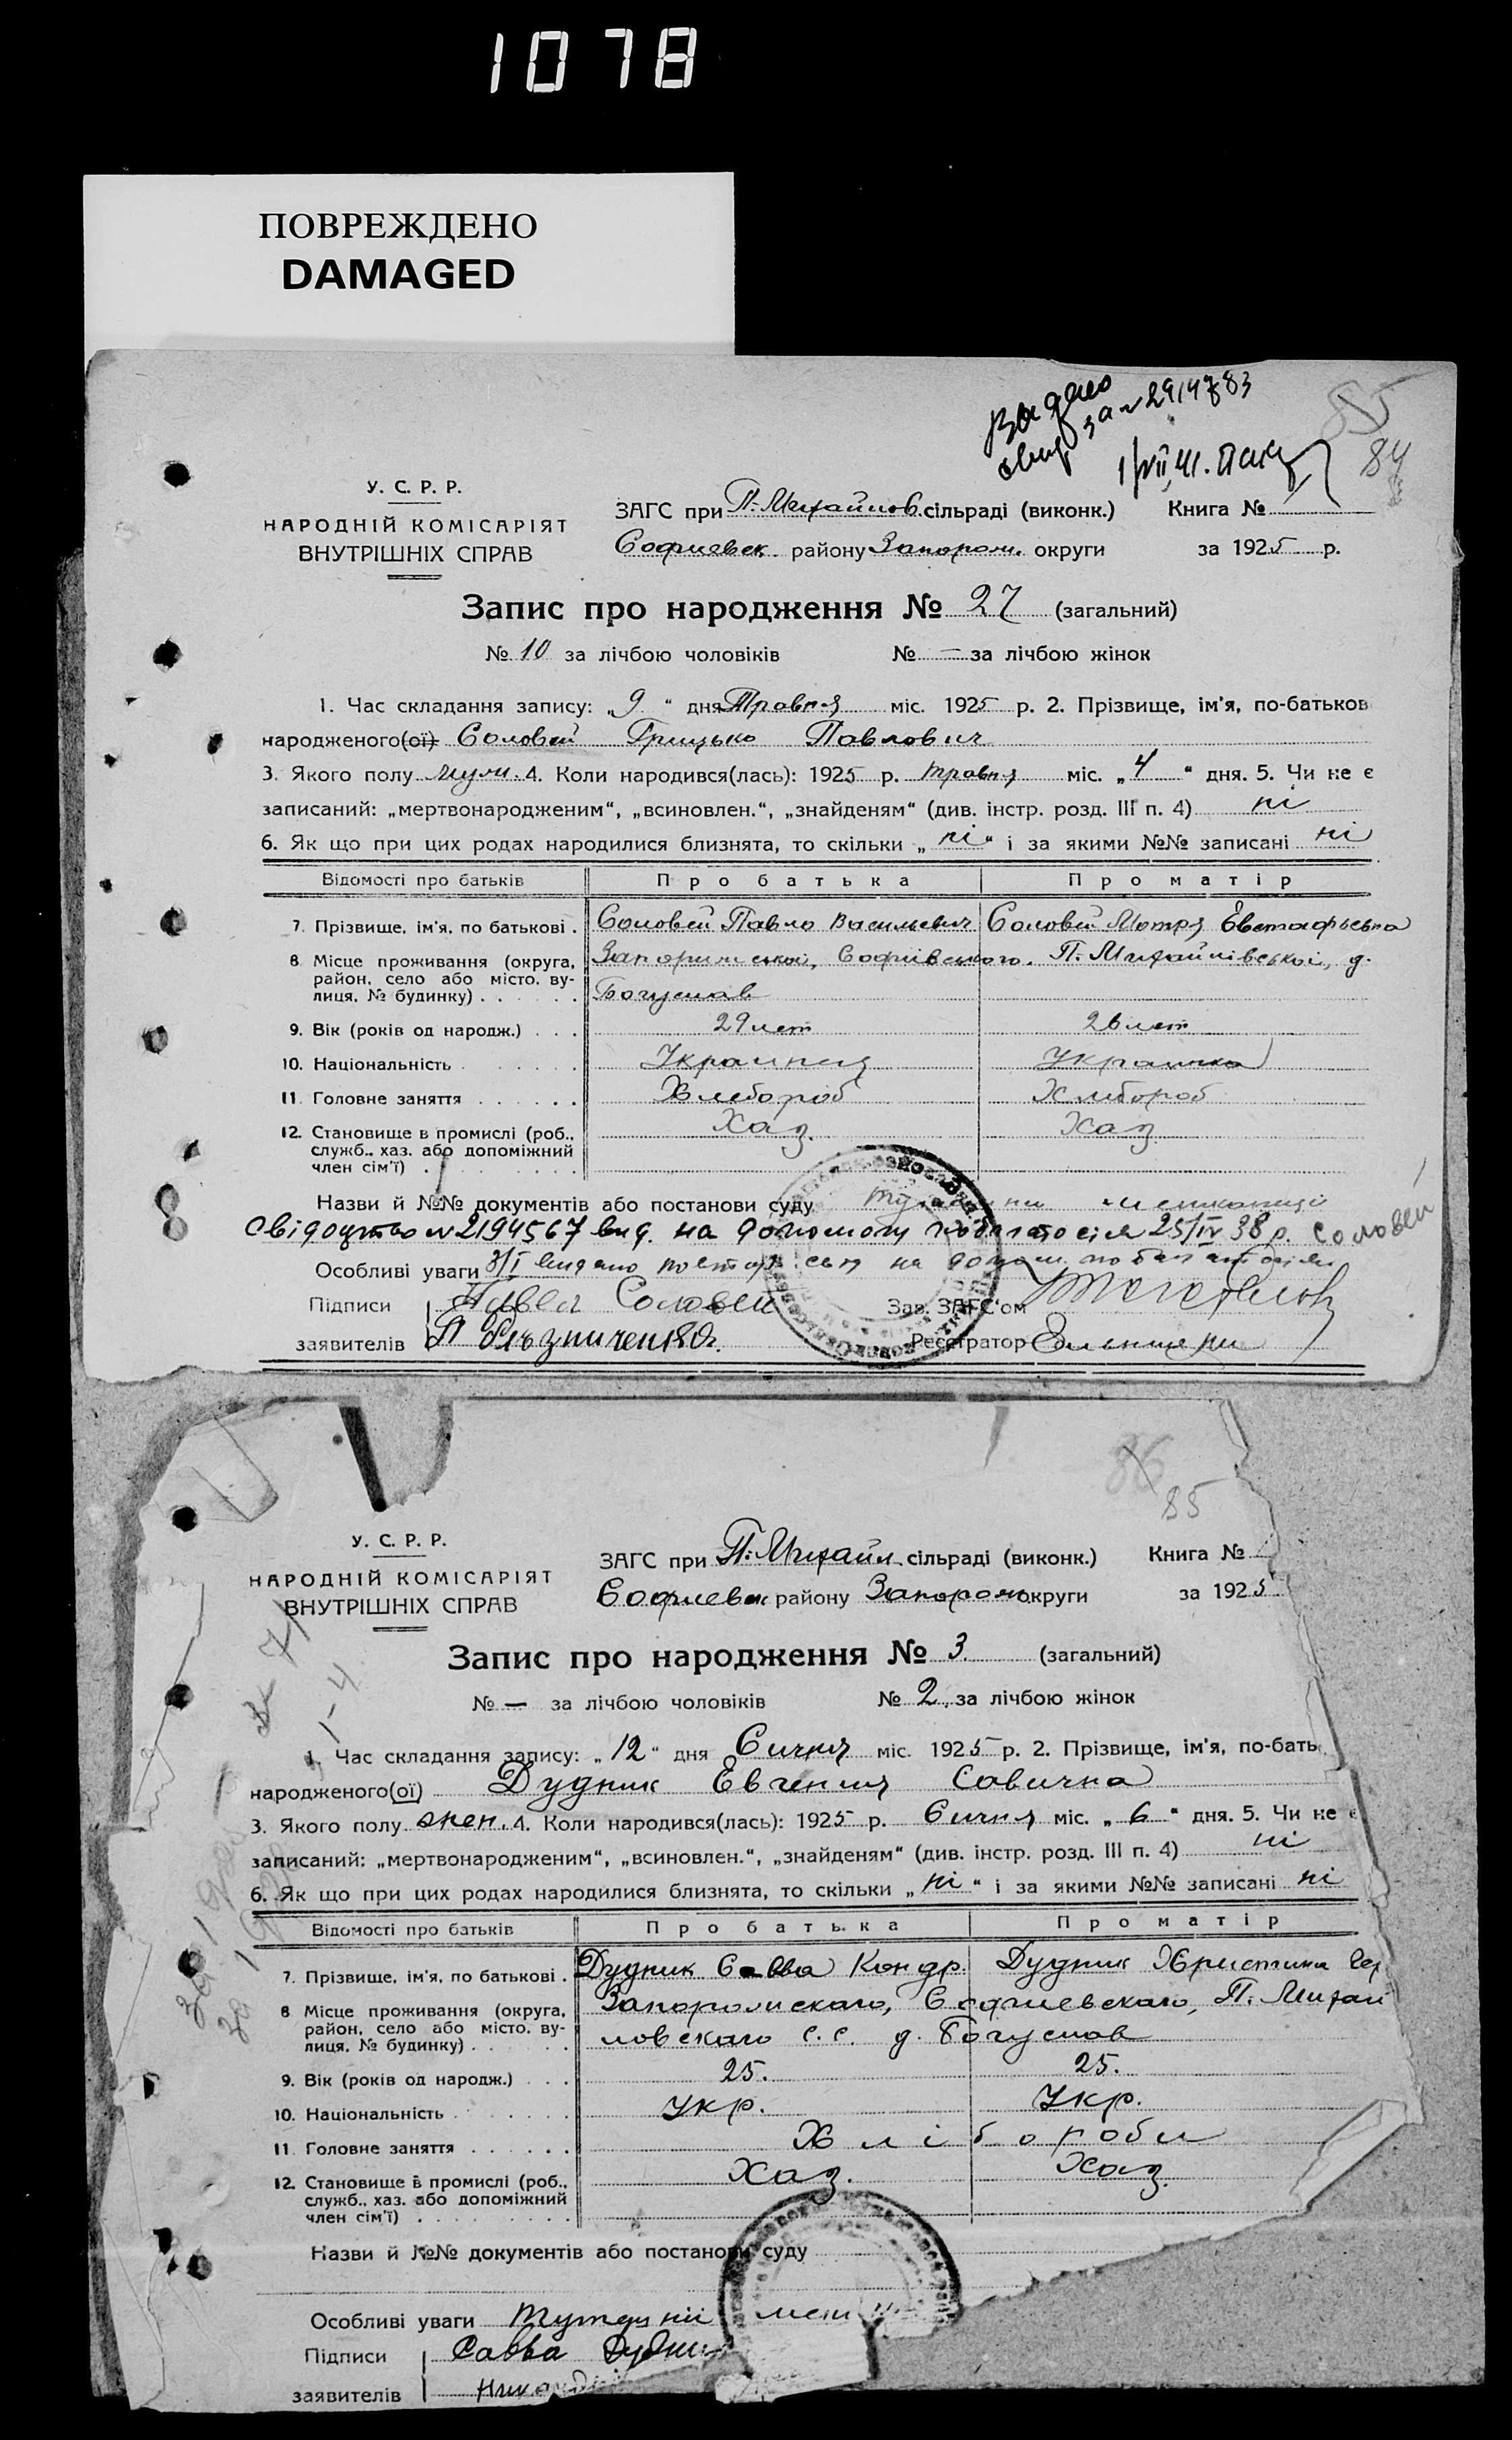 1078
ПОВРЕЖДЕНО
DAMAGED
Видано
за № 2914783
85
84
У. С. Р. Р.
НАРОДНІЙ КОМІСАРІЯТ
ВНУТРІШНІХ СПРАВ
ЗАГС при П.-Михайлов. сільраді (виконк.) Книга №
Софиевск. району Запорож. округи за 1925 р.
Запис про народження № 27 (загальний)
№ 10 за лічбою чоловіків № — за лічбою жінок
1. Час складання запису: „9“ дня Травня міс. 1925 р. 2. Прізвище, ім'я, по-батьков
народженого(ої) Соловей Грицько Павлович
3. Якого полу муж. 4. Коли народився(лась): 1925 р. травня міс. „4“ дня. 5. Чи не є
записаний: „мертвонародженим“, „всиновлен.“, „знайденям“ (див. інстр. розд. III п. 4) ні
6. Як що при цих родах народилися близнята, то скільки „ні“ і за якими №№ записані ні
Відомості про батьків Про батька Про матір
7. Прізвище, ім'я, по батькові . Соловей Павло Васильевич Соловей Мотря Евстафьевна
8 Місце проживання (округа, район, село або місто, ву-
лиця, № будинку) . Запорижської, Софиівського, П. Михайлівської, д.
Богуслав
9. Вік (років од народж.) . . . 29 лет 26 лет
10. Національність Украинец Украинка
11 Головне заняття Хлебороб Хлибороб
12. Становище в промислі (роб.,
служб., хаз. або допоміжний
член сім'ї) . Хаз. Хаз
Назви й №№ документів або постанови суду
Свідоцтво №2194567 вид. на допомогу по багатосім 25/IV 38 р. Соловей
Особливі уваги 3/I видано на допом. по багатосім
Підписи Павел Соловей Зав. ЗАГС'ом
заявителів Реєстратор
86
85
У. С. Р. Р.
НАРОДНІЙ КОМІСАРІЯТ
ВНУТРІШНІХ СПРАВ
ЗАГС при П.-Михайл. сільраді (виконк.) Книга №
Софиевск району Запорож. округи за 1925
Запис про народження № 3 (загальний)
№ — за лічбою чоловіків № 2 за лічбою жінок
1. Час складання запису: „12“ дня Сичня міс. 1925 р. 2. Прізвище, ім'я, по-бать
народженого(ої) Дудник Евгения Савична
3. Якого полу жен. 4. Коли народився(лась): 1925 р. Сичня міс. „6“ дня. 5. Чи не є
записаний: „мертвонародженим“, „всиновлен.“, „знайденям“ (див. інстр. розд. III п. 4) ні
6. Як що при цих родах народилися близнята, то скільки „ні“ і за якими №№ записані ні
Відомості про батьків Про батька Про матір
7. Прізвище, ім'я, по батькові . Дудник Савва Кондр. Дудник Християна
8 Місце проживання (округа,
район, село або місто, ву-
лиця, № будинку) . Запорожскаго, Софиевскаго, П. Михай
ловскаго с.с. д. Богуслав
9. Вік (років од народж.) . . . 25. 25.
10. Національність Укр. Укр.
11 Головне заняття Хлібороби
12. Становище в промислі (роб.,
служб., хаз. або допоміжний
член сім'ї) Хаз. Хаз.
Назви й №№ документів або постанови суду
Особливі уваги
Підписи Савва Дудник
заявителів